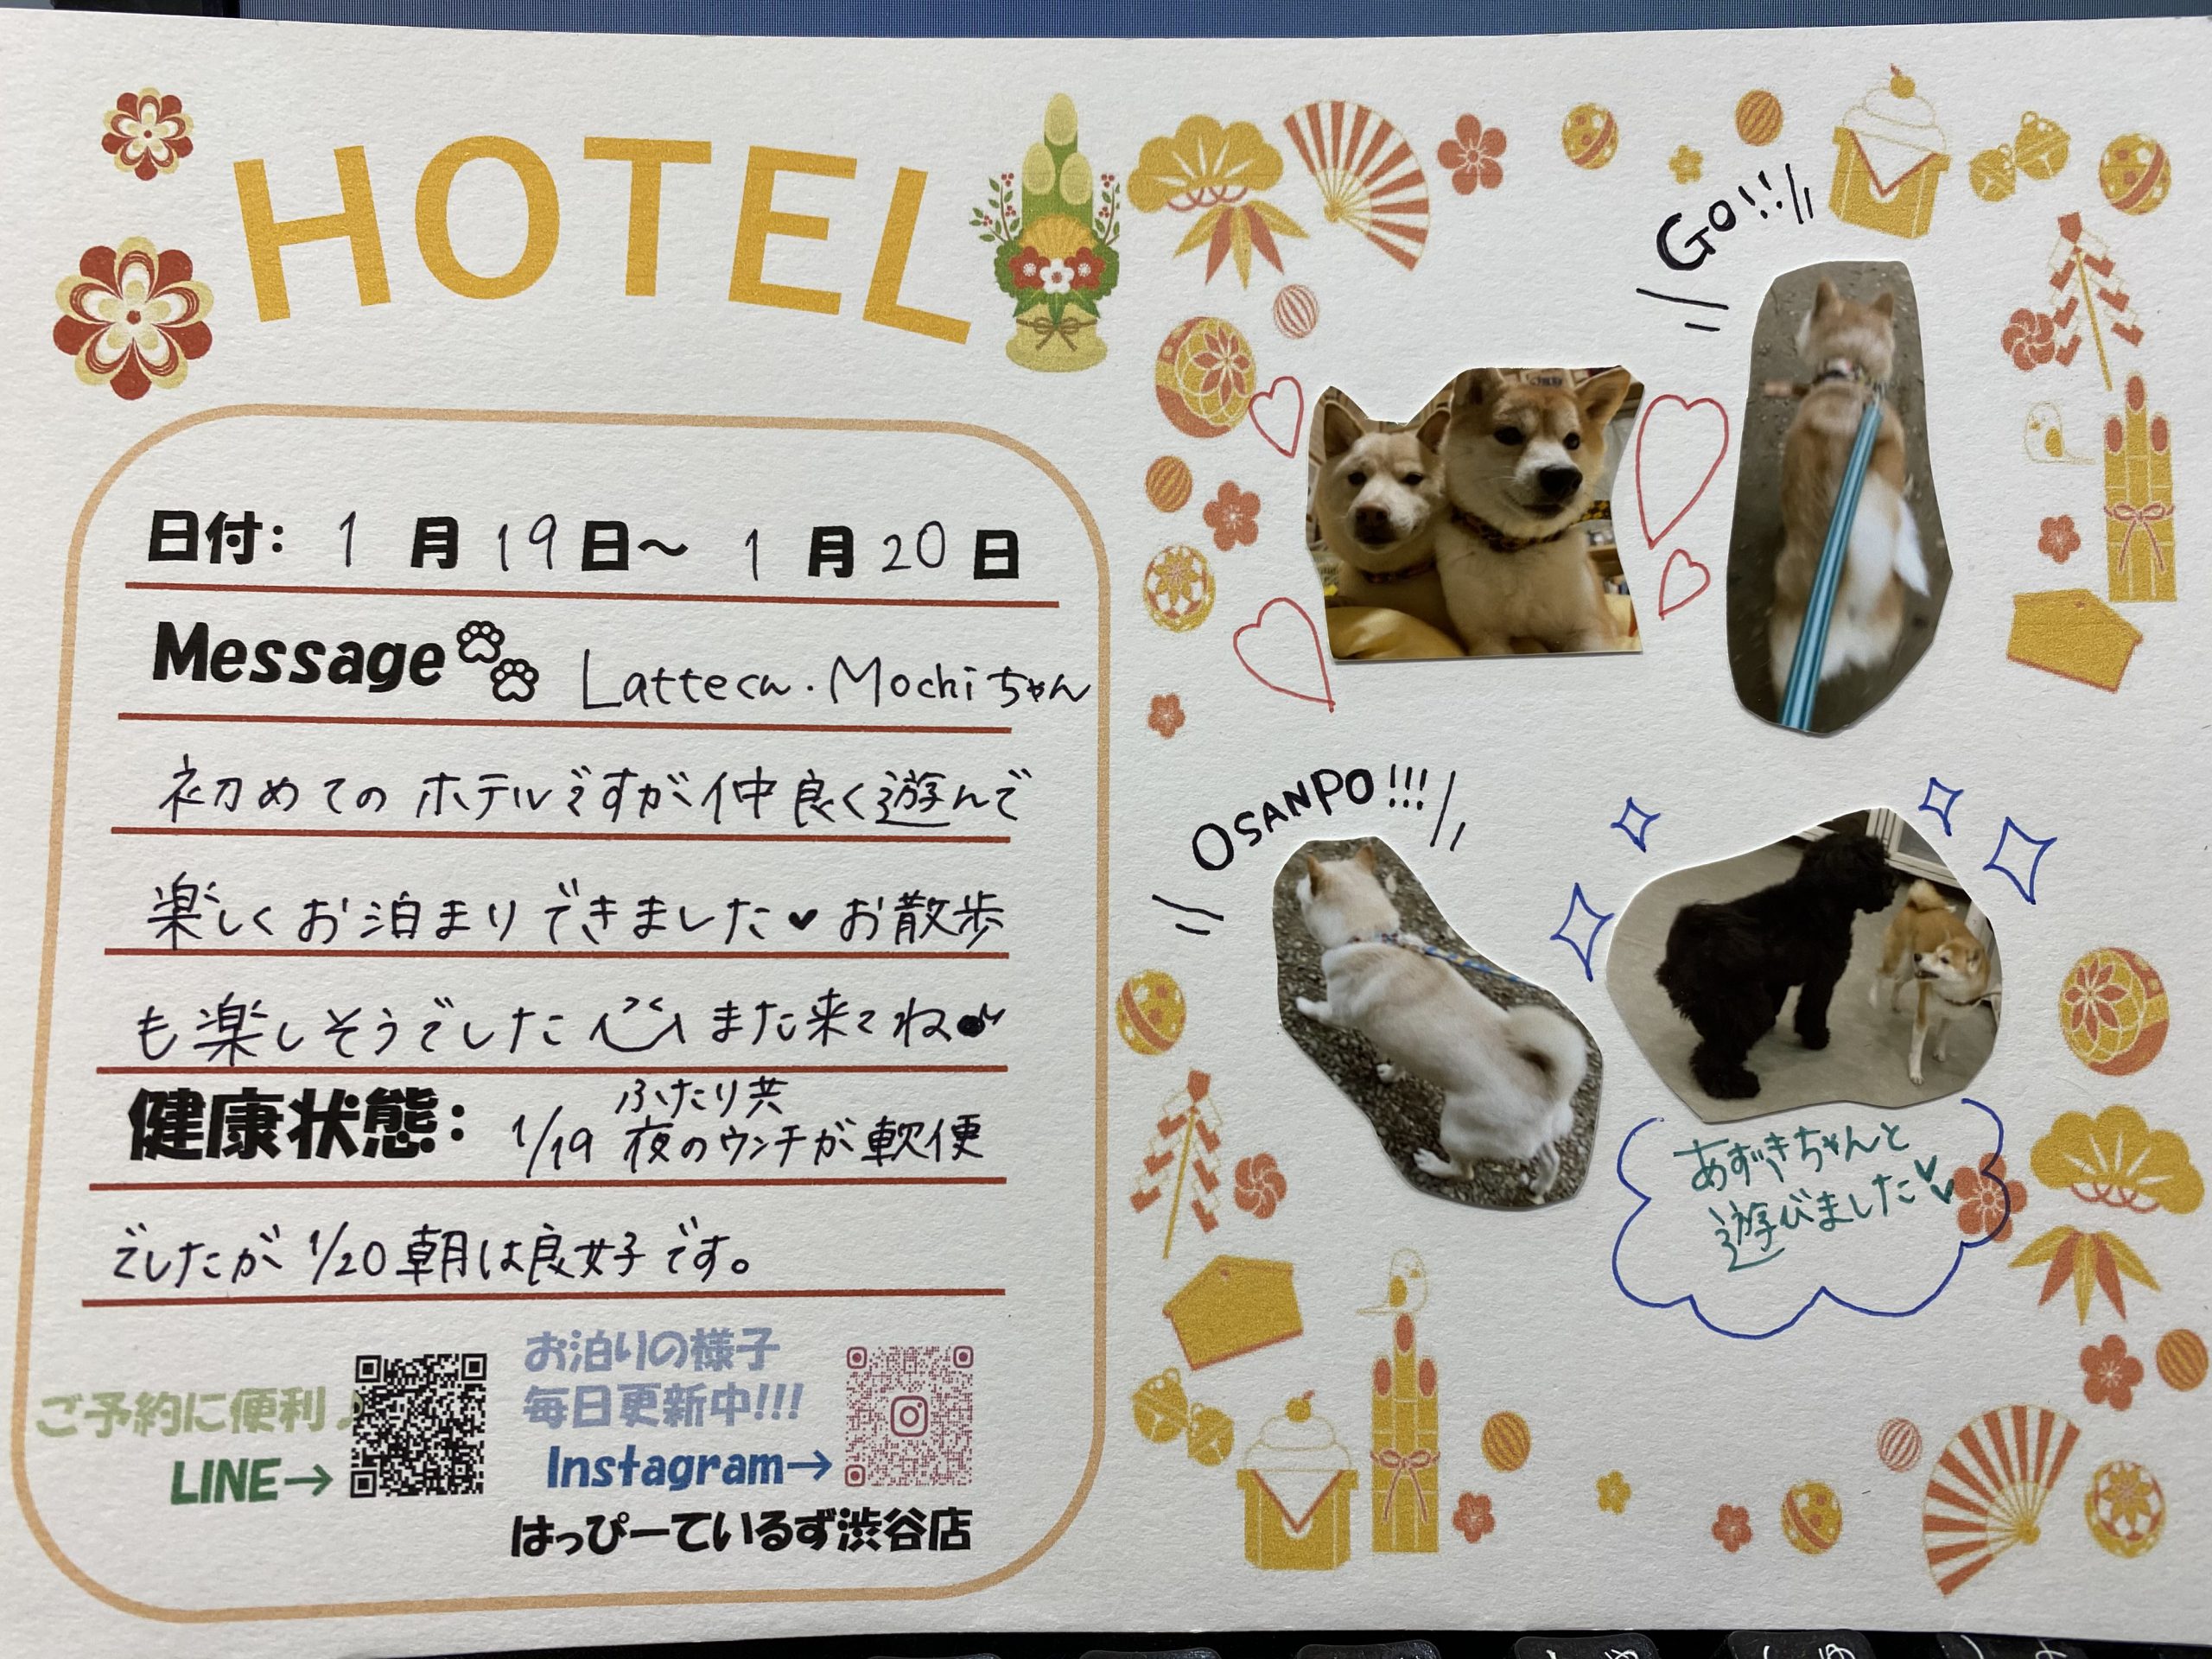 HOTEL
日付: 1月19日〜 1月20日
Message Latteくん・Mochiちゃん
初めてのホテルですが仲良く遊んで
楽しくお泊まりできました♥お散歩
も楽しそうでした また来てね
健康状態: 1/19 ふたり共 夜のウンチが軟便
でしたが 1/20 朝は良好です。
ご予約に便利♪
LINE→
お泊りの様子
毎日更新中!!!
Instagram→
はっぴーているず渋谷店
GO!!
OSANPO!!!
あずきちゃんと
遊びました♥